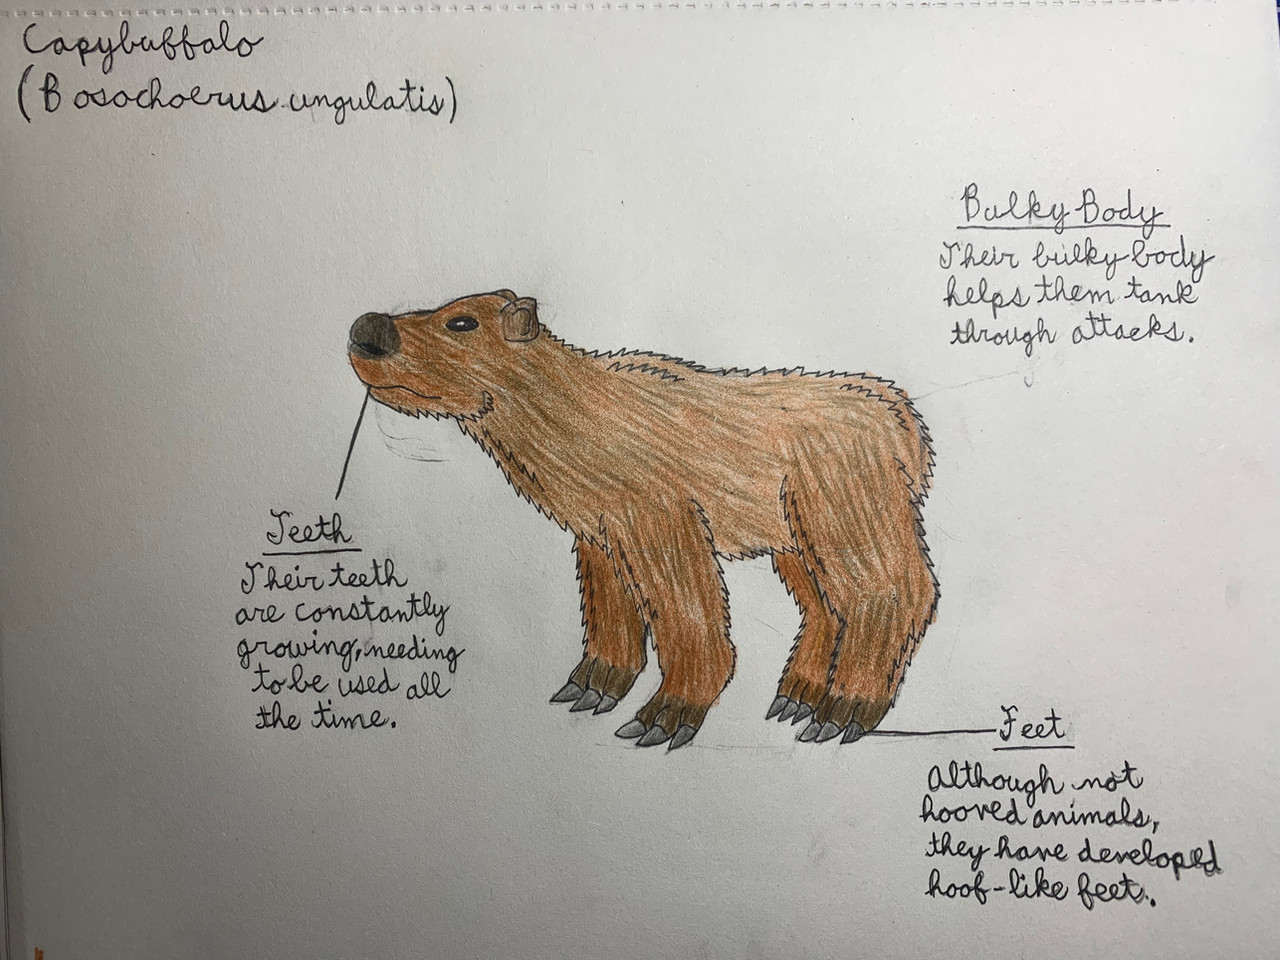 Capybuffalo
(Bosochoerus ungulatis)
Bulky Body
Their bulky body
helps them tank
through attacks.
Teeth
Their teeth
are constantly
growing, needing
to be used all
the time.
Feet
Although not
hooved animals,
they have developed
hoof-like feet.